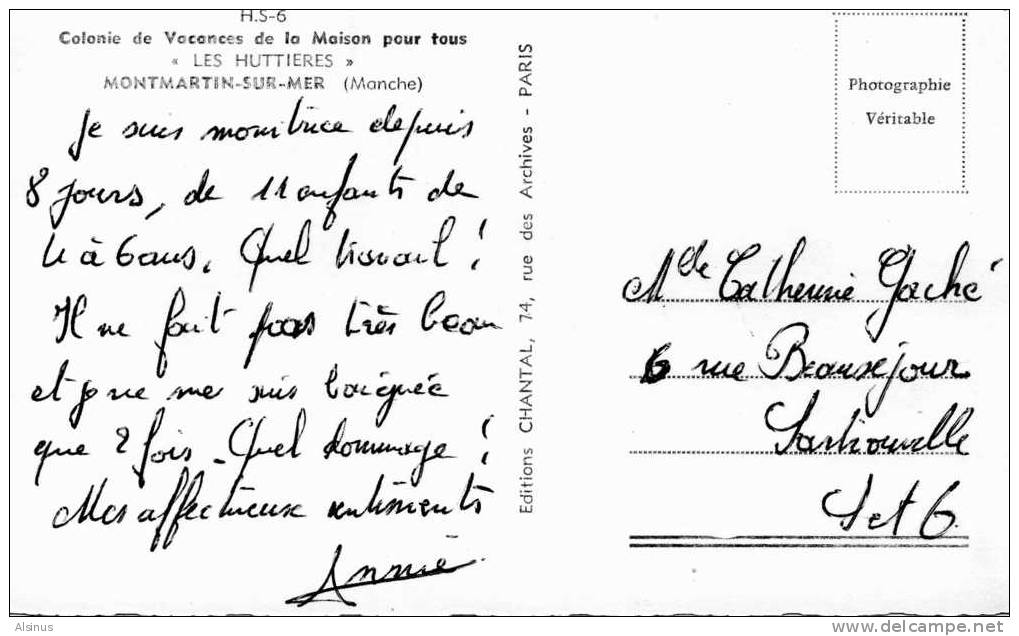 H.S-6
Colonie de Vacances de la Maison pour tous
« LES HUTTIERES »
MONTMARTIN-SUR-MER (Manche)
Je suis monitrice depuis
8 jours, de 11 enfants de
4 à 6 ans. Quel travail !
Il ne fait pas très beau
et je ne me suis baignée
que 2 fois. Quel dommage !
Mes affectueux sentiments
Annie
Editions CHANTAL, 74, rue des Archives - PARIS
Photographie
Véritable
Mlle Catherine Gaché
6 rue Beauséjour
Sartrouville
S et O.
Alsinus
www.delcampe.net